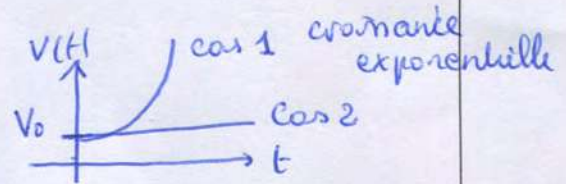 V(t)
cas 1 croissance
exponentielle
V₀
Cas 2
t